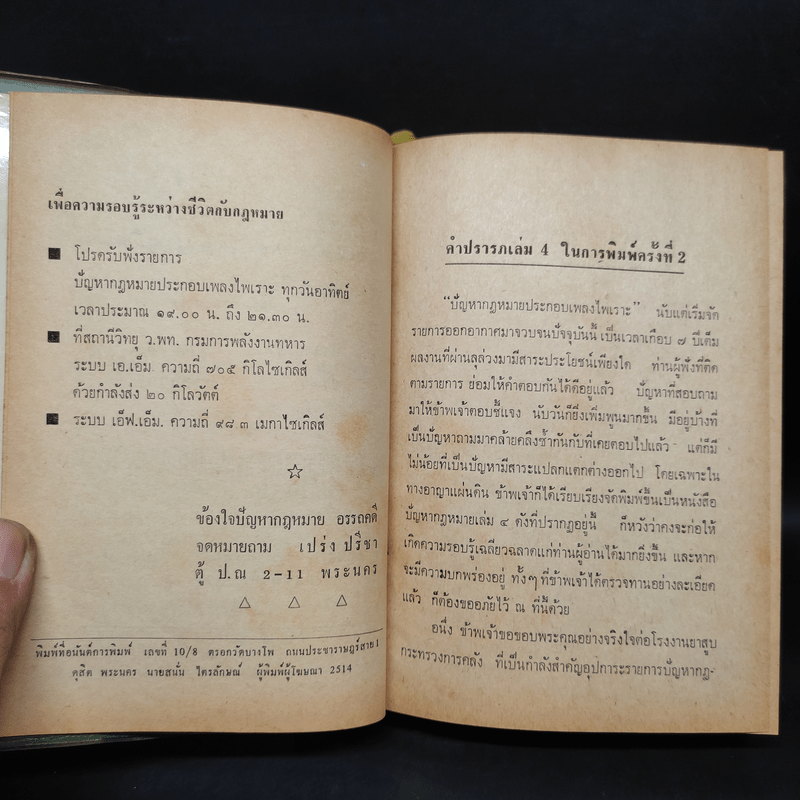 เพื่อความรอบรู้ระหว่างชีวิตกับกฎหมาย
■ โปรดรับฟังรายการ
ปัญหากฎหมายประกอบเพลงไพเราะ ทุกวันอาทิตย์
เวลาประมาณ ๑๙.๐๐ น. ถึง ๒๑.๓๐ น.
■ ที่สถานีวิทยุ ว.พท. กรมการพลังงานทหาร
ระบบ เอ.เอ็ม. ความถี่ ๗๐๕ กิโลไซเกิลส์
ด้วยกำลังส่ง ๒๐ กิโลวัตต์
■ ระบบ เอ็ฟ.เอ็ม. ความถี่ ๙๘.๓ เมกาไซเกิลส์
☆
ข้องใจปัญหากฎหมาย อรรถคดี
จดหมายถาม เปร่ง ปรีชา
ตู้ ป.ณ 2-11 พระนคร
△ △ △
พิมพ์ที่อนันต์การพิมพ์ เลขที่ 10/8 ตรอกวัดบางโพ ถนนประชาราษฎร์สาย 1
ดุสิต พระนคร นายสนั่น ไตรลักษณ์ ผู้พิมพ์ผู้โฆษณา 2514
คำปรารภเล่ม 4 ในการพิมพ์ครั้งที่ 2
"ปัญหากฎหมายประกอบเพลงไพเราะ" นับแต่เริ่มจัด
รายการออกอากาศมาจวบจนปัจจุบันนี้ เป็นเวลาเกือบ ๗ ปีเต็ม
ผลงานที่ผ่านลุล่วงมามีสาระประโยชน์เพียงใด ท่านผู้ฟังที่ติด
ตามรายการ ย่อมให้คำตอบกันได้ดีอยู่แล้ว ปัญหาที่สอบถาม
มาให้ข้าพเจ้าตอบชี้แจง นับวันก็ยิ่งเพิ่มพูนมากขึ้น มีอยู่บ้างที่
เป็นปัญหาถามมาคล้ายคลึงซ้ำกันกับที่เคยตอบไปแล้ว แต่ก็มี
ไม่น้อยที่เป็นปัญหามีสาระแปลกแตกต่างออกไป โดยเฉพาะใน
ทางอาญาแผ่นดิน ข้าพเจ้าก็ได้เรียบเรียงจัดพิมพ์ขึ้นเป็นหนังสือ
ปัญหากฎหมายเล่ม ๔ ดังที่ปรากฏอยู่นี้ ก็หวังว่าคงจะก่อให้
เกิดความรอบรู้เฉลียวฉลาดแก่ท่านผู้อ่านได้มากยิ่งขึ้น และหาก
จะมีความบกพร่องอยู่ ทั้งๆ ที่ข้าพเจ้าได้ตรวจทานอย่างละเอียด
แล้ว ก็ต้องขออภัยไว้ ณ ที่นี้ด้วย
อนึ่ง ข้าพเจ้าขอขอบพระคุณอย่างจริงใจต่อโรงงานยาสูบ
กระทรวงการคลัง ที่เป็นกำลังสำคัญอุปการะรายการปัญหากฎ-